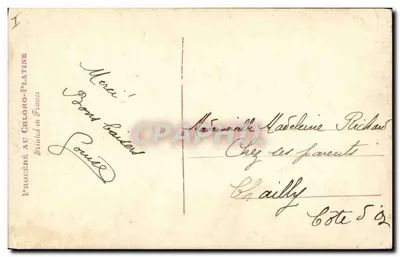 I
PROCÉDÉ AU CHLORO-PLATINE
Printed in France
Merci!
Bons baisers
Louise
CPAPHIL
Mademoiselle Madeleine Richard
Chez ses parents
Chailly
Côte d'Or